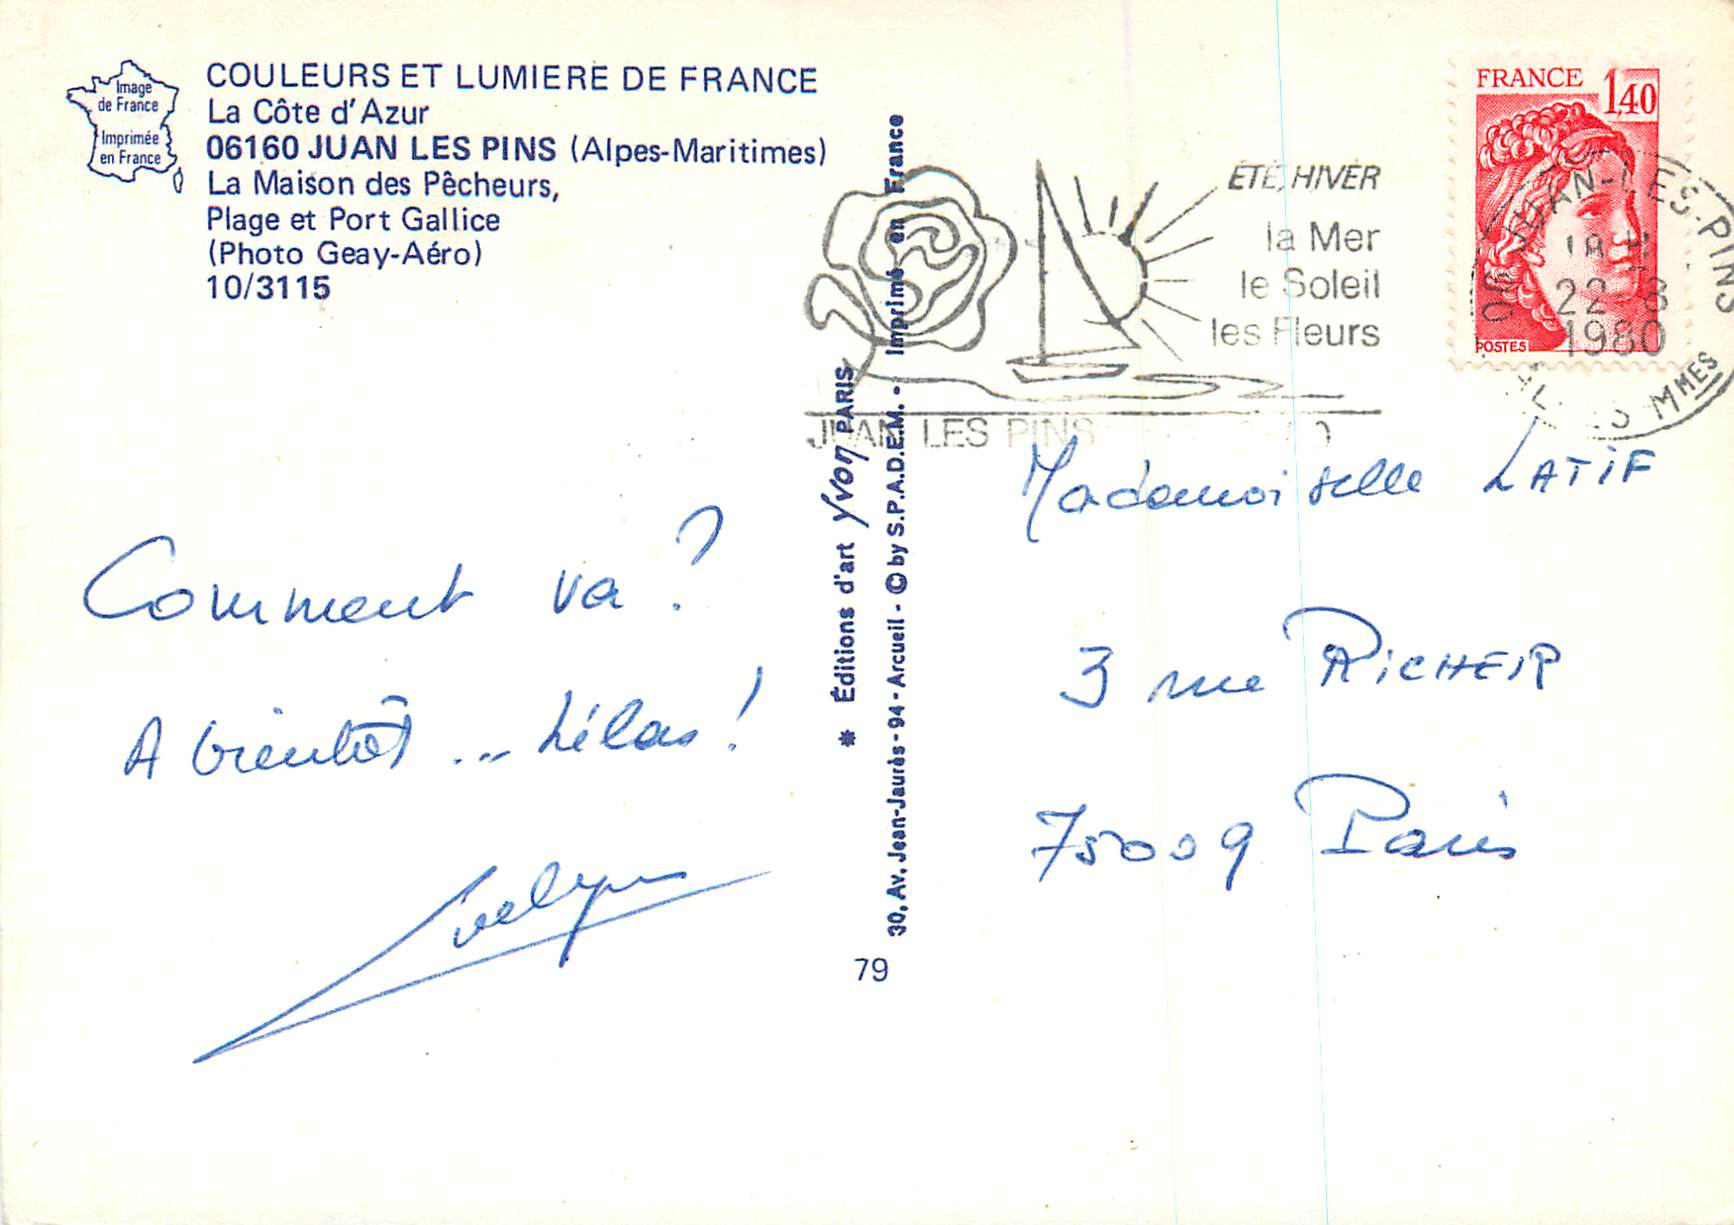 Image
de France
Imprimée
en France
COULEURS ET LUMIERE DE FRANCE
La Côte d'Azur
06160 JUAN LES PINS (Alpes-Maritimes)
La Maison des Pêcheurs,
Plage et Port Gallice
(Photo Geay-Aéro)
10/3115
ÉTÉ, HIVER
la Mer
le Soleil
les Fleurs
JUAN LES PINS
FRANCE 1,40
POSTES
06 JUAN-LES-PINS
22-8
1980
MMES
Comment va ?
A bientôt ... hélas !
Evelyne
* Éditions d'art Yvon PARIS
30, Av. Jean-Jaurès - 94 - Arcueil - © by S.P.A.D.E.M. - Imprimé en France
79
Mademoiselle LATIF
3 rue RICHER
75009 Paris